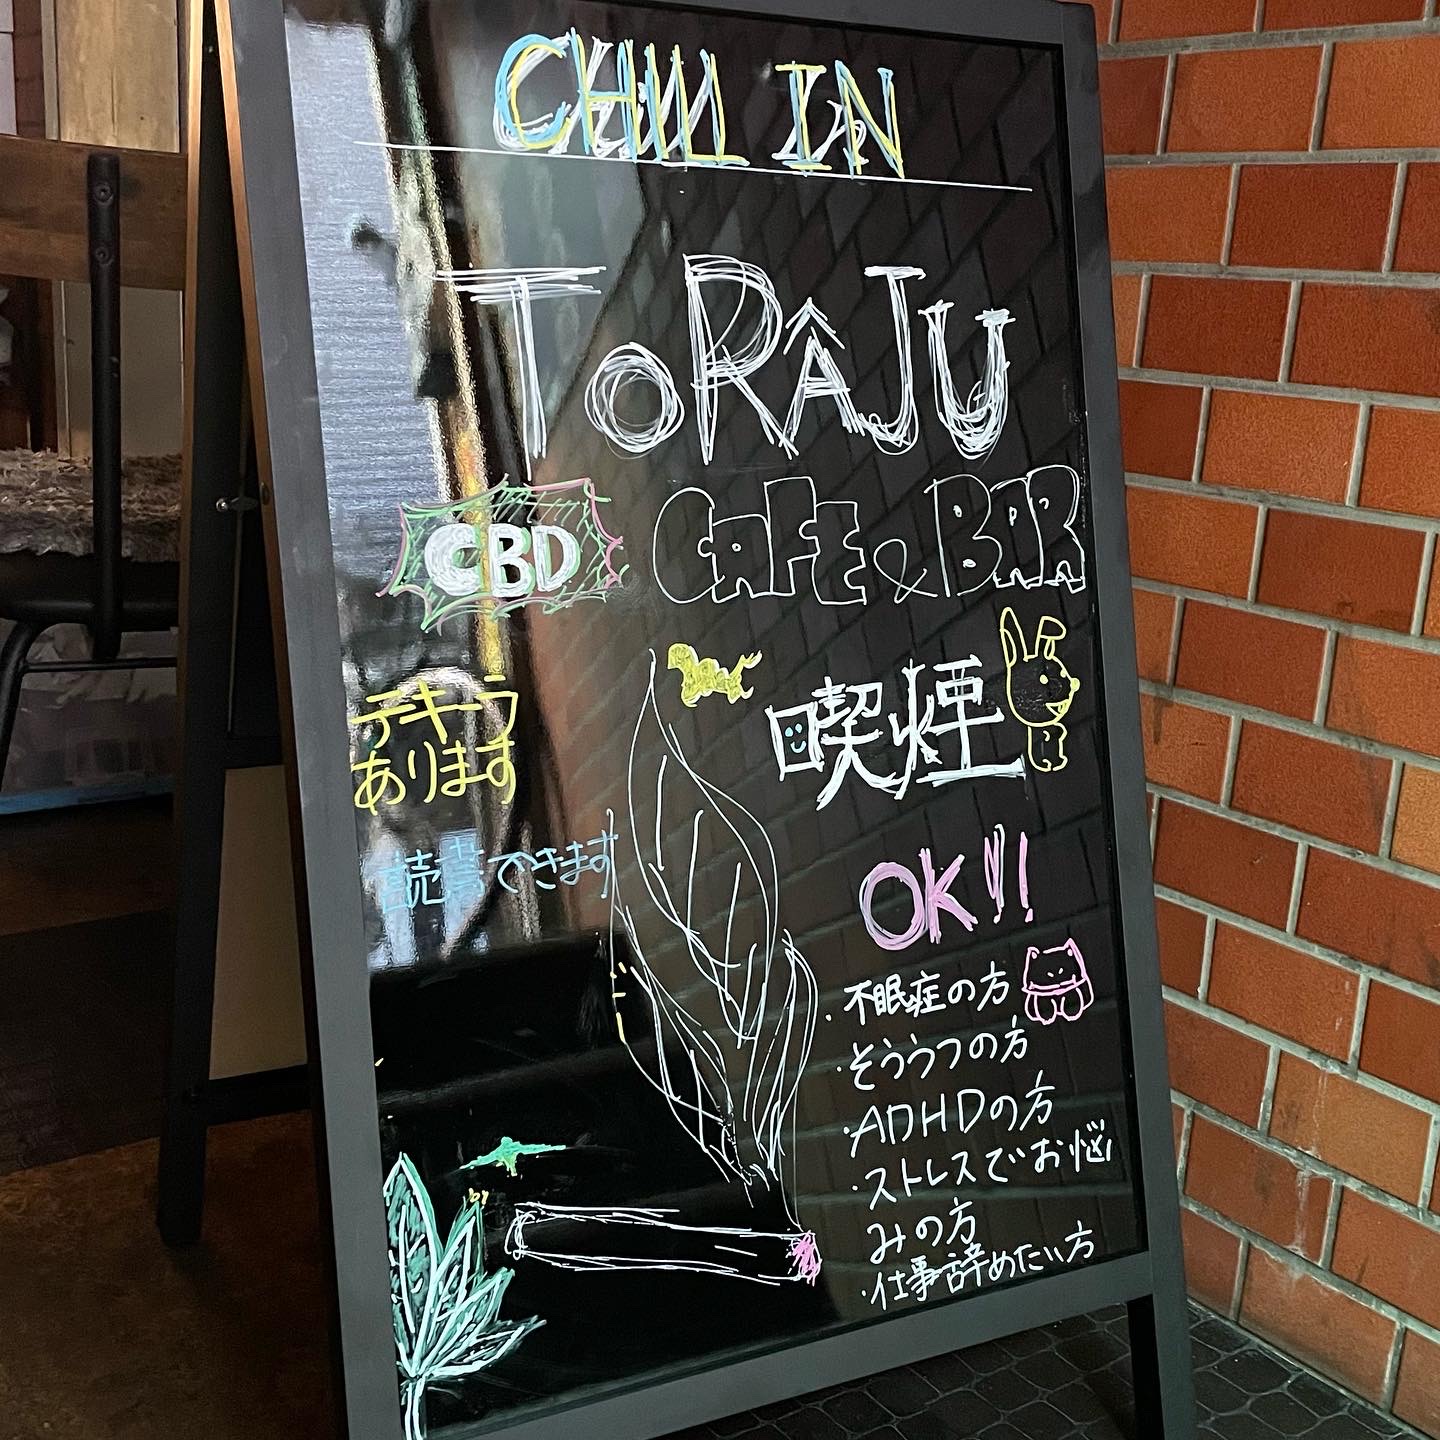 CHILL IN
ToRAJU
CBD
CAFE & BAR
テキーラ
あります
喫煙
読書できます
OK!!
・不眠症の方
・そううつの方
・ADHDの方
・ストレスでお悩
みの方
・仕事辞めたい方